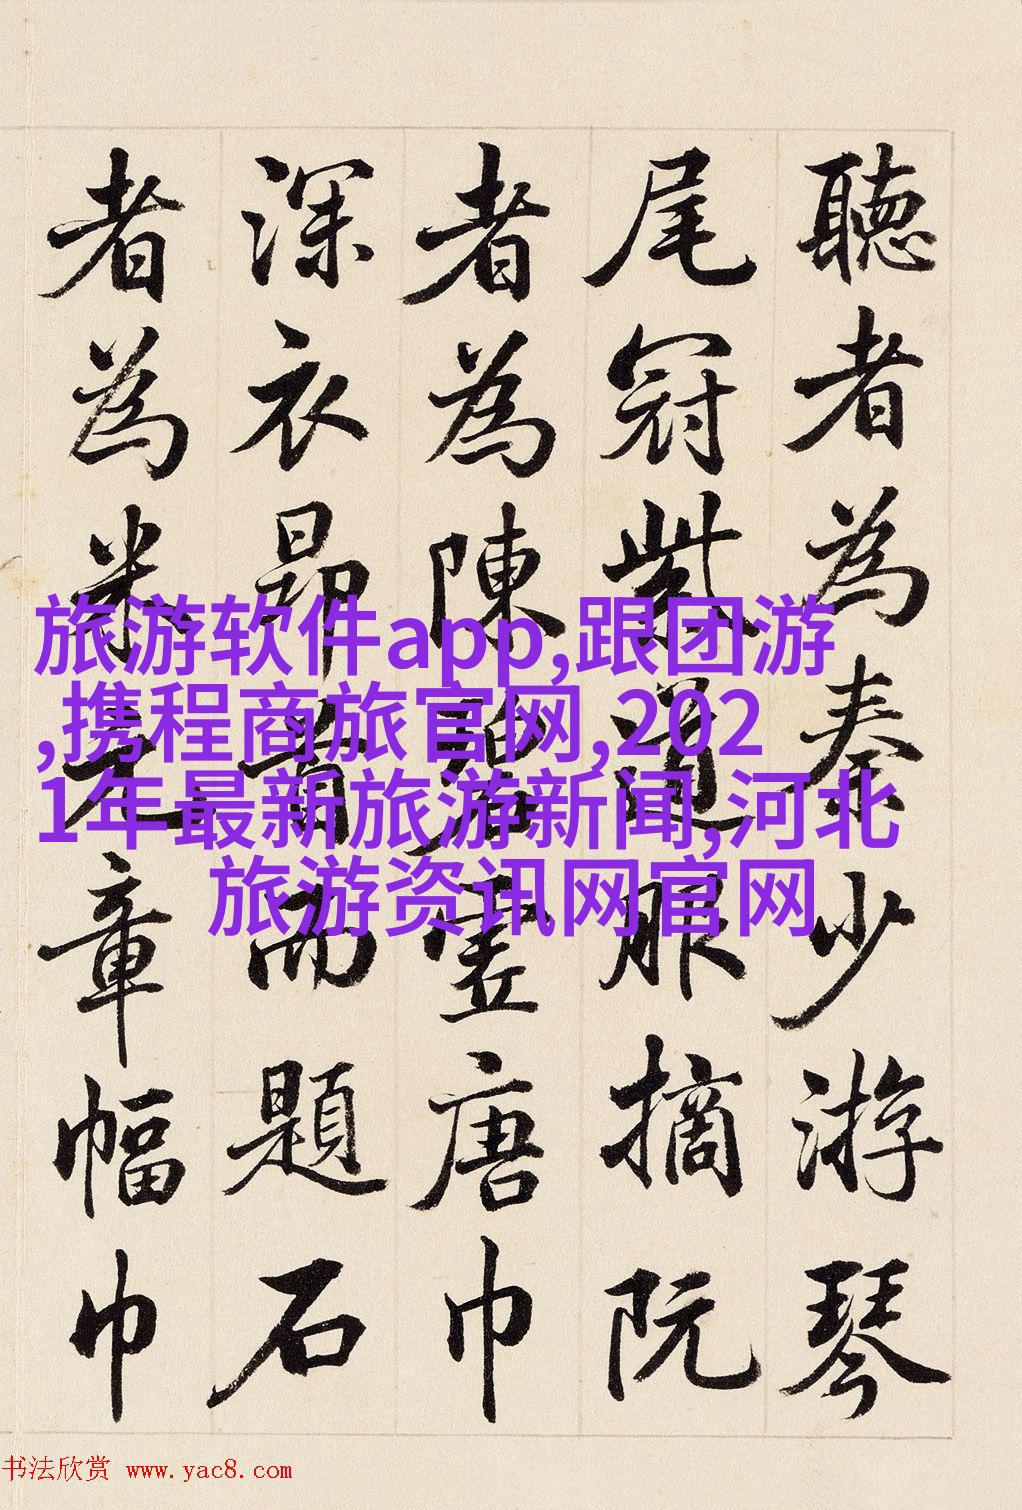 聽者為秦少游琴
尾冠紫道服摘阮
者為陳碧虛唐巾
深衣昂首而題石
者為米元章幅巾
旅游软件app,跟团游
,携程商旅官网,202
1年最新旅游新闻,河北
旅游资讯网官网
书法欣赏 www.yac8.com